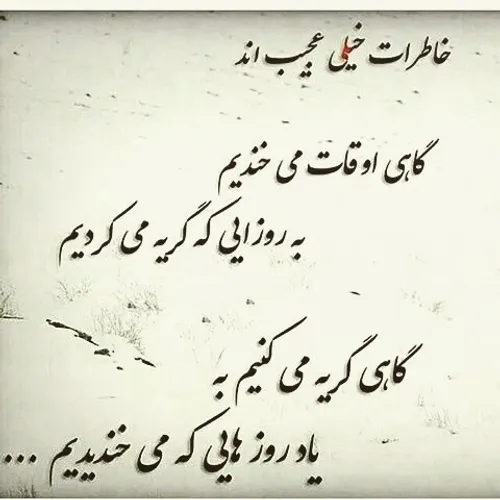 خاطرات خیلی عجیب اند
گاهی اوقات می خندیم
به روزایی که گریه می کردیم
گاهی گریه می کنیم به
یاد روز هایی که می خندیدیم ...